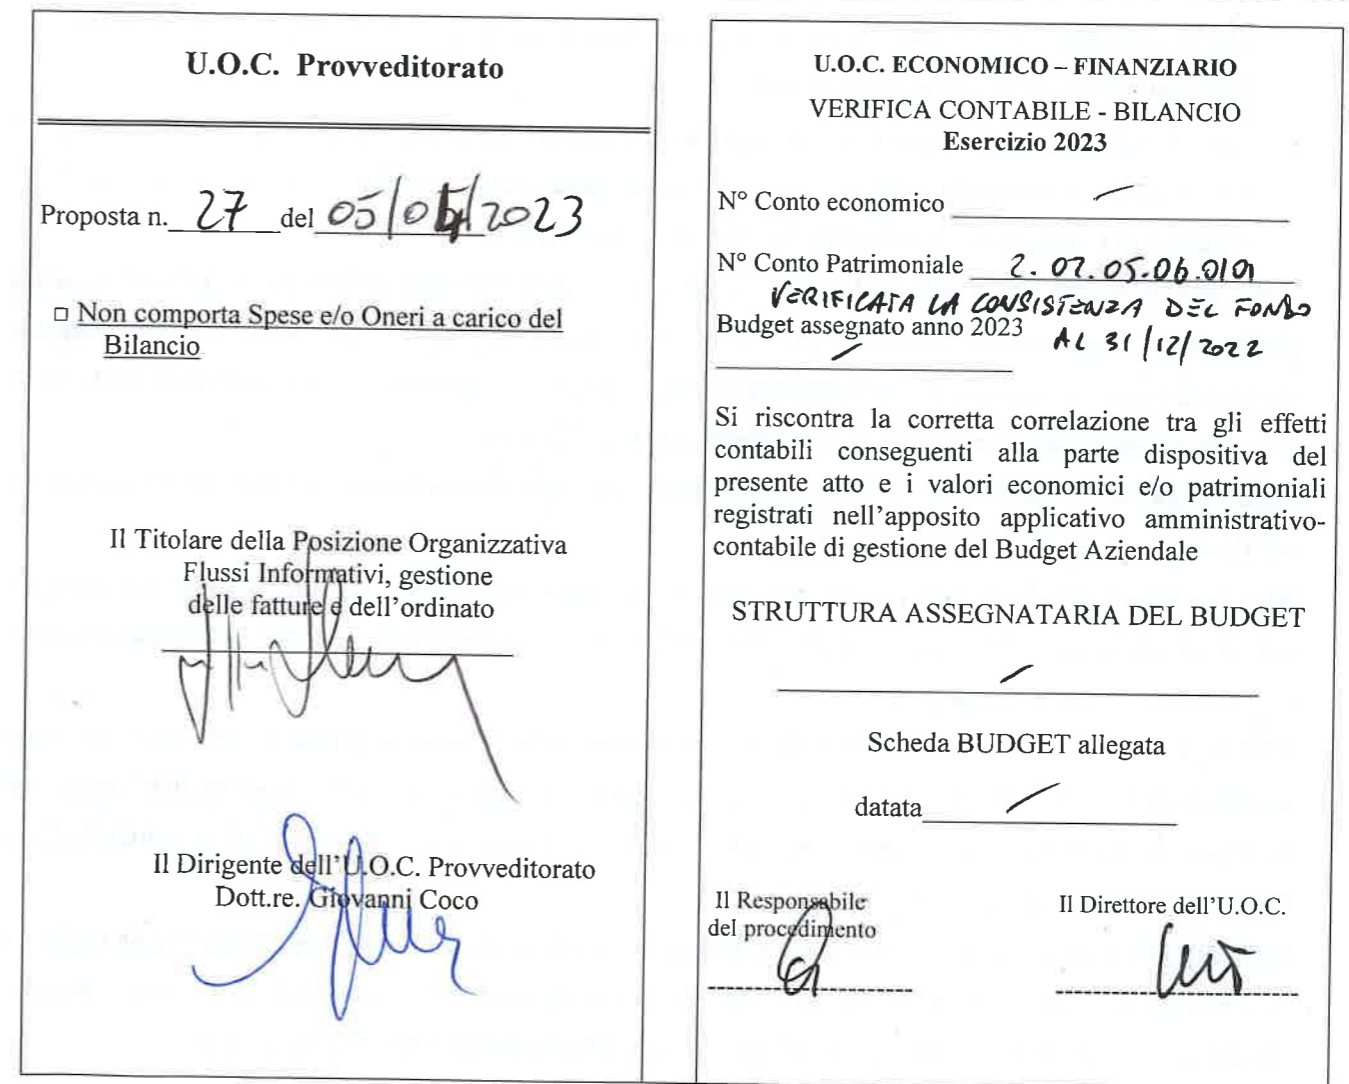 U.O.C. Provveditorato
Proposta n. 27 del 05/04/2023
□ Non comporta Spese e/o Oneri a carico del
Bilancio
Il Titolare della Posizione Organizzativa
Flussi Informativi, gestione
delle fatture e dell'ordinato
Il Dirigente dell'U.O.C. Provveditorato
Dott.re. Giovanni Coco
U.O.C. ECONOMICO – FINANZIARIO
VERIFICA CONTABILE - BILANCIO
Esercizio 2023
N° Conto economico
N° Conto Patrimoniale 2.02.05.06.0101
VERIFICATA LA CONSISTENZA DEL FONDO
Budget assegnato anno 2023 AL 31/12/2022
Si riscontra la corretta correlazione tra gli effetti
contabili conseguenti alla parte dispositiva del
presente atto e i valori economici e/o patrimoniali
registrati nell'apposito applicativo amministrativo-
contabile di gestione del Budget Aziendale
STRUTTURA ASSEGNATARIA DEL BUDGET
Scheda BUDGET allegata
datata
Il Responsabile
del procedimento
Il Direttore dell'U.O.C.